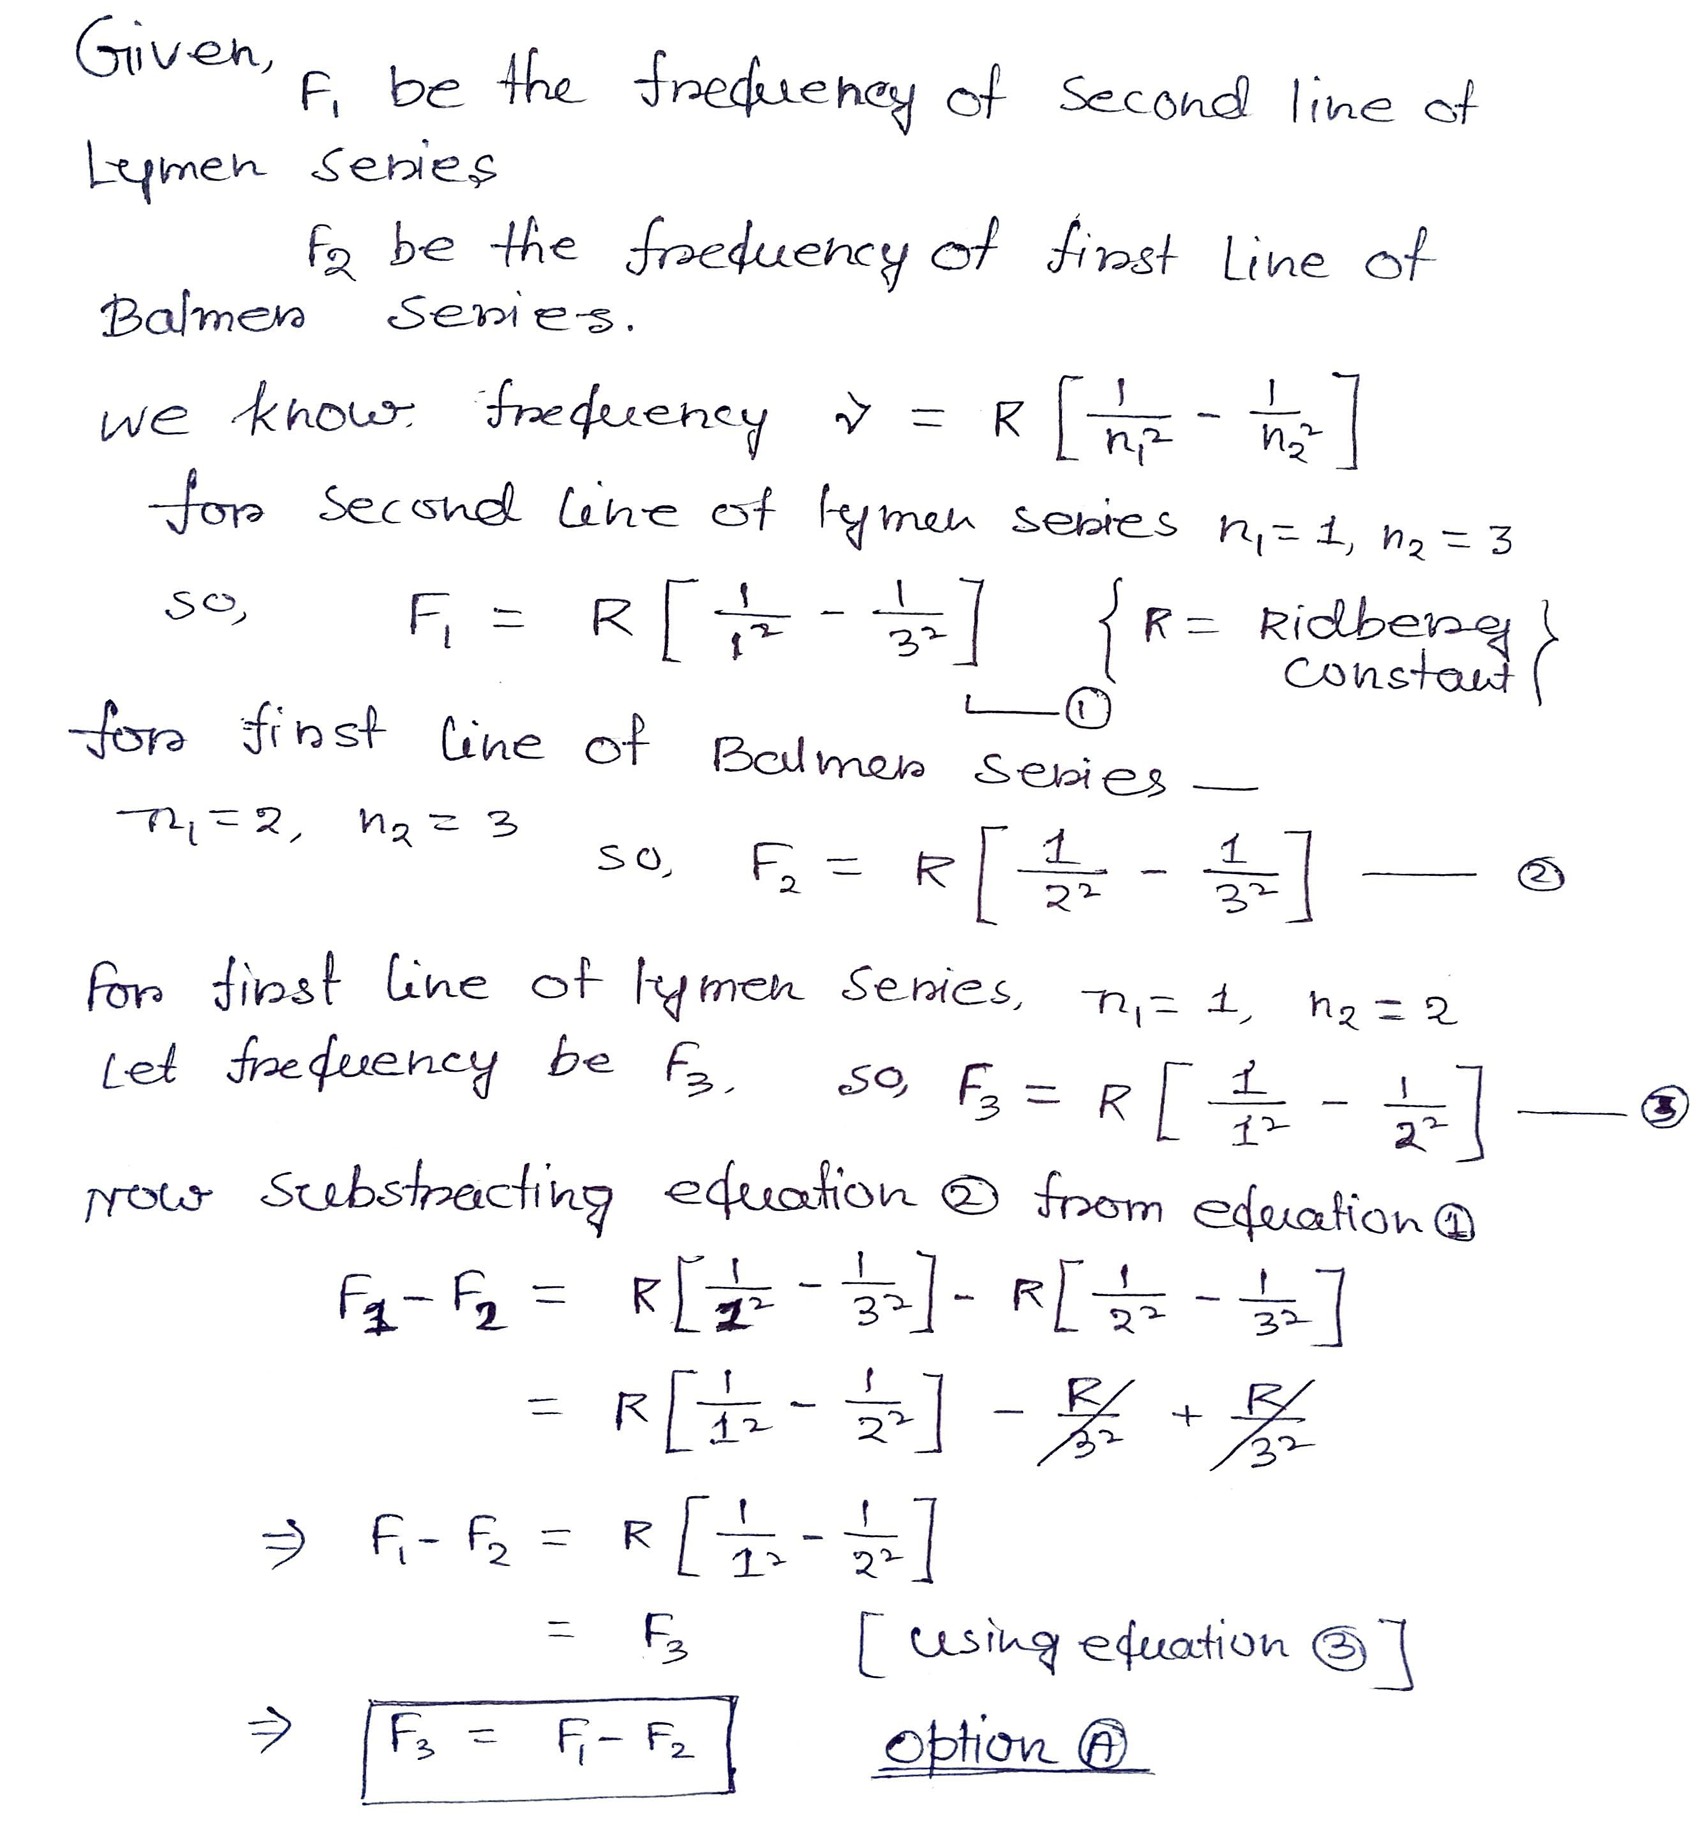 Given,
F₁ be the frequency of Second line of
Lymen series
F₂ be the frequency of first Line of
Balmer Series.
we know. frequency ν = R [1/n₁² - 1/n₂²]
for second line of lymen series n₁ = 1, n₂ = 3
so, F₁ = R [1/1² - 1/3²] {R = Ridberg
constant}
①
for first line of Balmer series —
n₁ = 2, n₂ = 3
so, F₂ = R [1/2² - 1/3²] — ②
for first line of lymen Series, n₁ = 1, n₂ = 2
Let frequency be F₃. so, F₃ = R [1/1² - 1/2²] — ③
Now substracting equation ② from equation ①
F₁ - F₂ = R [1/1² - 1/3²] - R [1/2² - 1/3²]
= R [1/1² - 1/2²] - R/3² + R/3²
⇒ F₁ - F₂ = R [1/1² - 1/2²]
= F₃ [using equation ③]
⇒ F₃ = F₁ - F₂ option Ⓐ